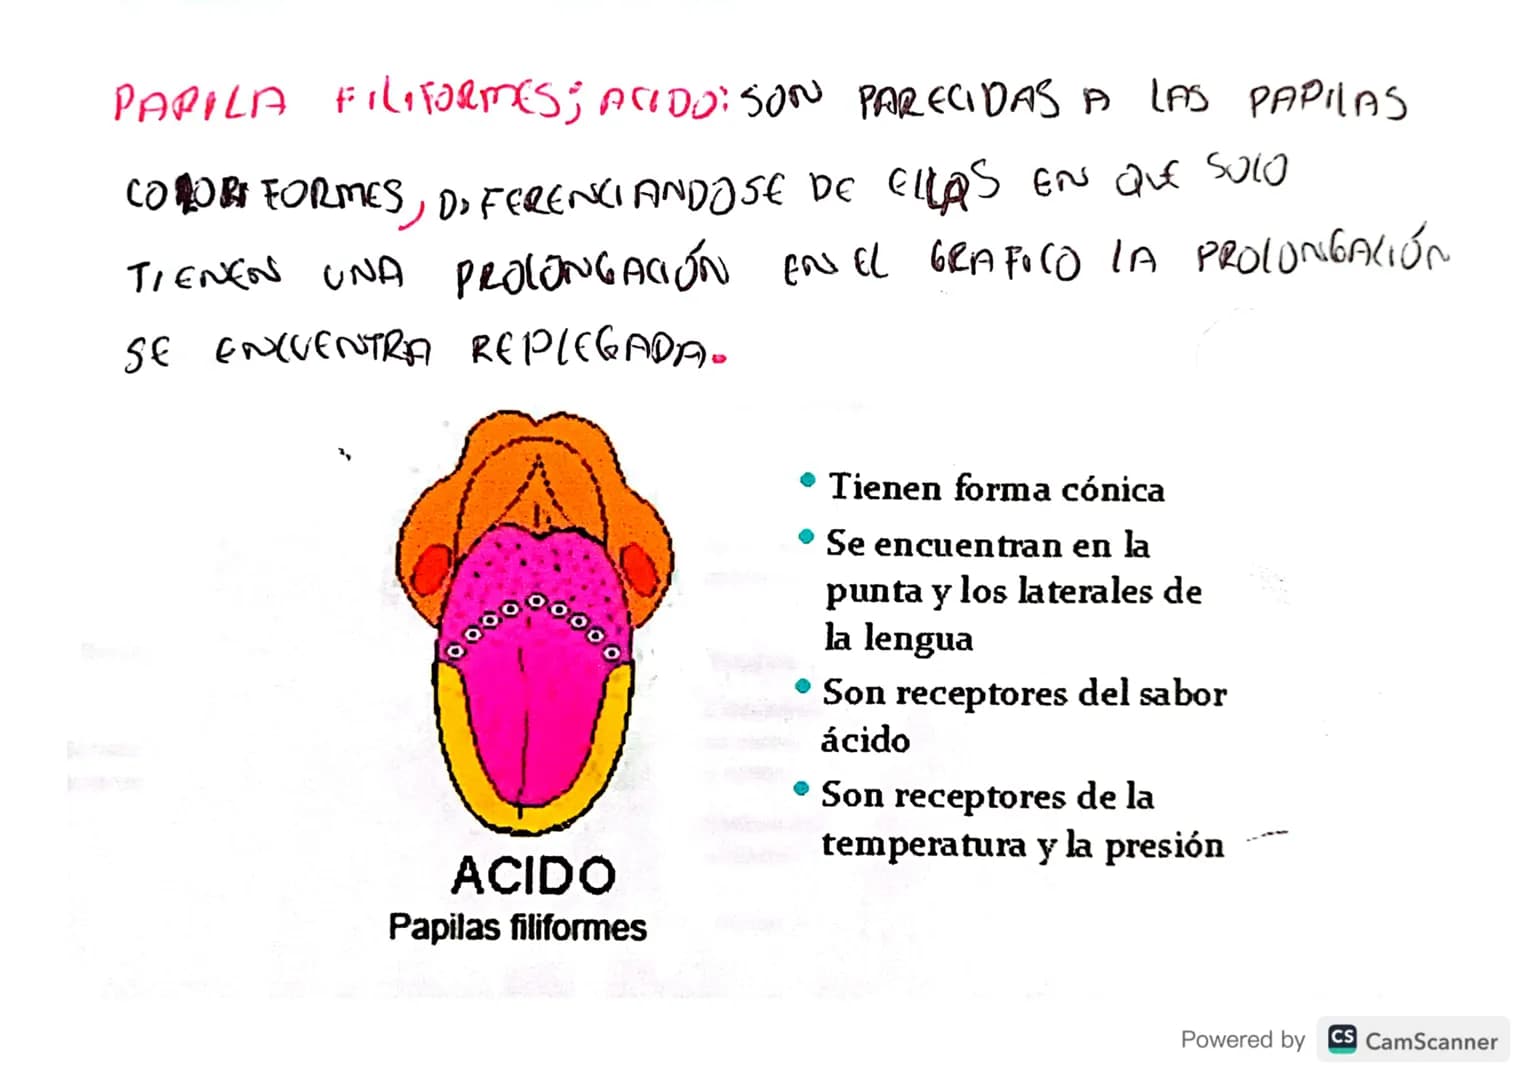 PAPILA FILIFORMES; ACIDO: SON PARECIDAS A LAS PAPILAS
FORMES, DIFERENCIANDOSE DE ELLAS EN QUE SOLO
TIENEN UNA PROLONGACIÓN EN EL GRAFICO LA PROLONGACIÓN
SE ENCUENTRA REPLEGADA.
• Tienen forma cónica
• Se encuentran en la
punta y los laterales de
la lengua
• Son receptores del sabor
ácido
• Son receptores de la
temperatura y la presión
ACIDO
Papilas filiformes
Powered by CS CamScanner